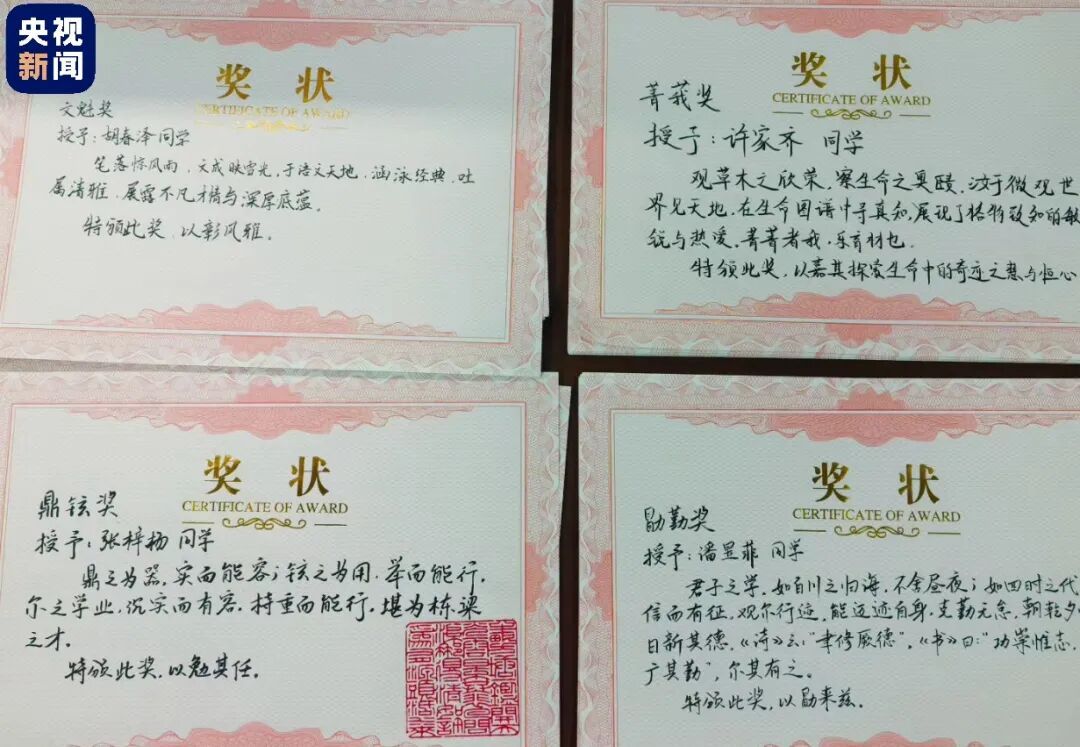 央视
新闻
奖 状
CERTIFICATE OF AWARD
文魁奖
授予：胡春泽同学
笔落惊风雨，文成映雪光，于语文天地，涵泳经典，吐
属清雅，展露不凡才情与深厚底蕴。
特颁此奖，以彰风雅。
奖 状
CERTIFICATE OF AWARD
菁莪奖
授予：许家齐 同学
观草木之欣荣，察生命之奥赜，汝于微观世
界见天地，在生命图谱中寻真知，展现了格物致知的敏
锐与热爱，菁菁者莪，乐育材也。
特颁此奖，以嘉其探索生命中的奇迹之慧与恒心
奖 状
CERTIFICATE OF AWARD
鼎铉奖
授予：张梓杨 同学
鼎之为器，实而能容；铉之为用，举而能行，
尔之学业，沉实而有容，持重而能行，堪为栋梁
之才。
特颁此奖，以勉其任。
奖 状
CERTIFICATE OF AWARD
勖勤奖
授予：潘昱菲 同学
君子之学，如百川之归海，不舍昼夜；如四时之代
信而有征，观尔行迹，能迈迹自身，克勤无怠，朝乾夕
日新其德，《诗》云：“聿修厥德”，《书》曰：“功崇惟志，
广其勤”，尔其有之。
特颁此奖，以勖来兹。